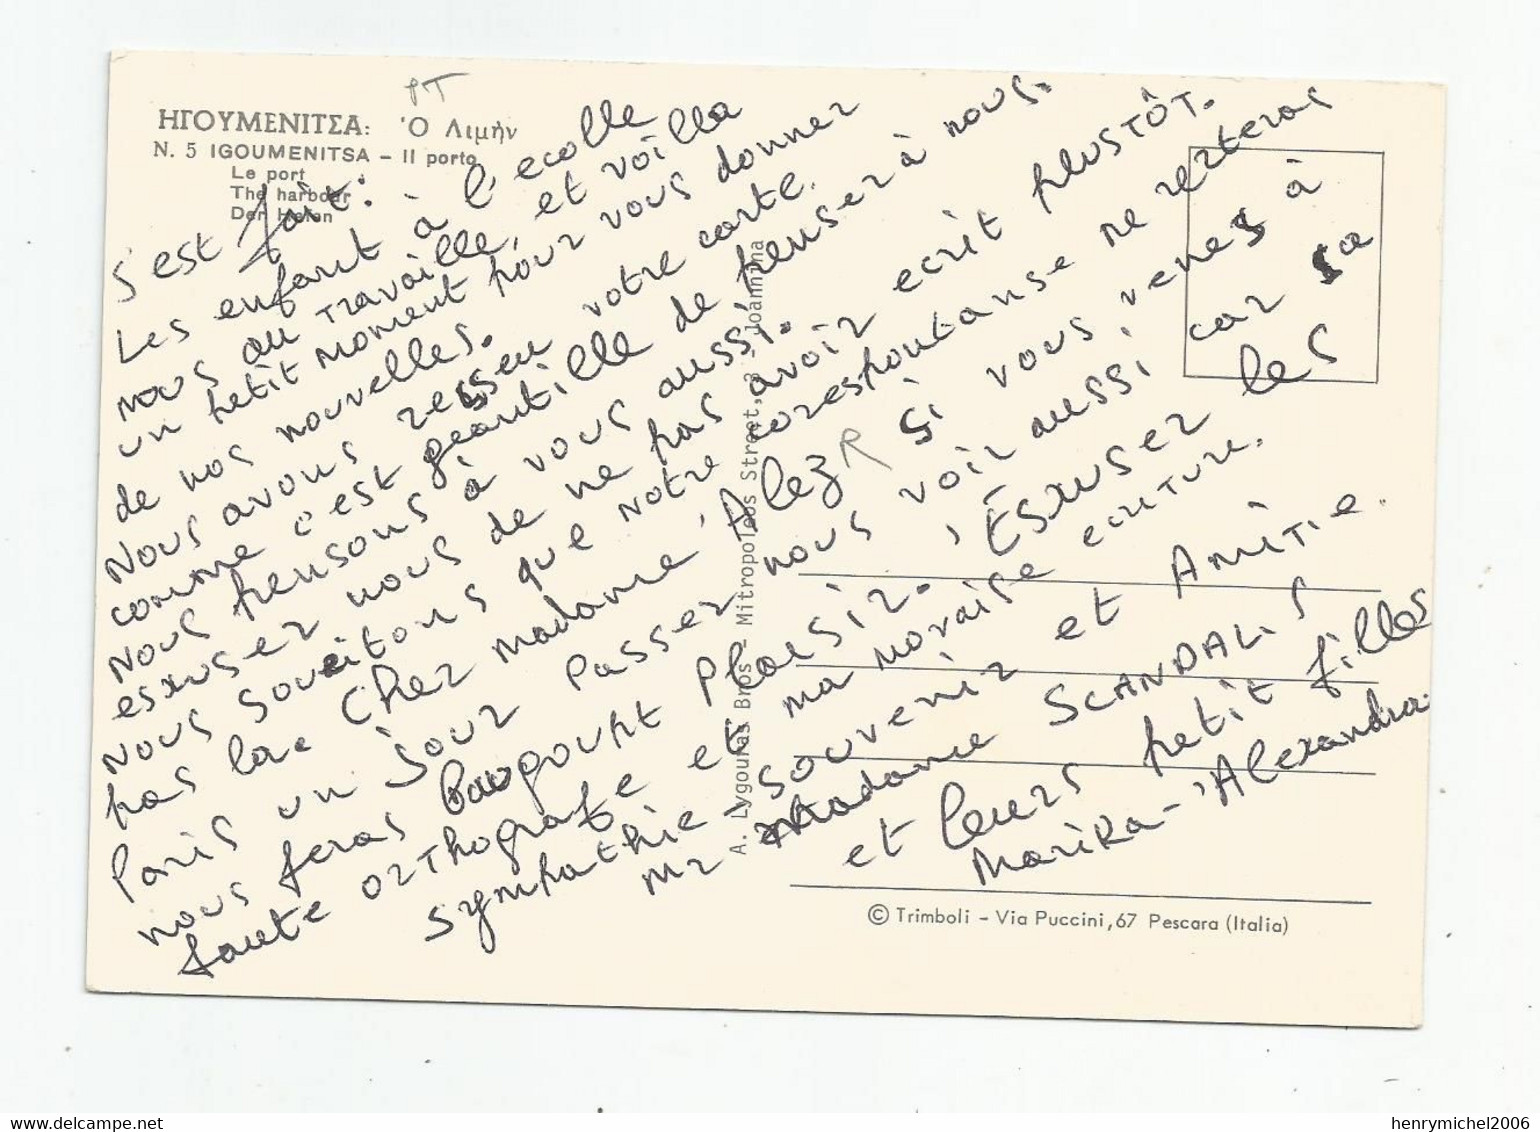 ΗΓΟΥΜΕΝΙΤΣΑ: Ὁ Λιμὴν
N. 5 IGOUMENITSA – Il porto
Le port
The harbour
Der Hafen
PT
s'est fait:
Les enfant à l'ecolle
nous au travaille, et voilla
un petit moment pour vous donner
de nos nouvelles.
Nous avons resseu votre carte.
comme c'est geantille de penser à nous.
Nous pensons à vous aussi.
esxuser nous de ne pas avoir ecrit plustôt.
Nous soueitons que notre coresphontanse ne resteras
pas la. Chez madame 'Alez R si vous venes à
Paris un jour passer nous voir aussi car sa
nous feras baugoupt plaisir. , Esxuser les
faute orthografe et ma movaise ecriture.
sympathie – souvenir et Amitie.
Mr Madame SCANDALIS
et leurs petit filles
Marika – 'Alexandra.
A. Lygouras Bros – Mitropoleos Street, 3 – Joannina
© Trimboli – Via Puccini, 67 Pescara (Italia)
henrymichel2006